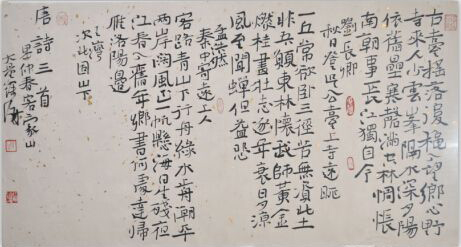 古臺搖落後穐入望鄉心野
寺來人少雲峯隔水深夕陽
依舊壘寒磬滿空林惆悵
南朝事長江獨自今
劉長卿
秋日登吳公臺上寺遠眺
一丘常欲臥三徑苦無資北土
非吾願東林懷我師黃金
燃桂盡壯志逐年衰日夕涼
風至聞蟬但益悲
孟浩然
秦中寄遠上人
客路青山下行舟綠水前潮平
兩岸闊風正一帆懸海日生殘夜
江春入舊年鄉書何處達歸
雁洛陽邊
王灣
次北固山下
唐詩三首
仲春客家山